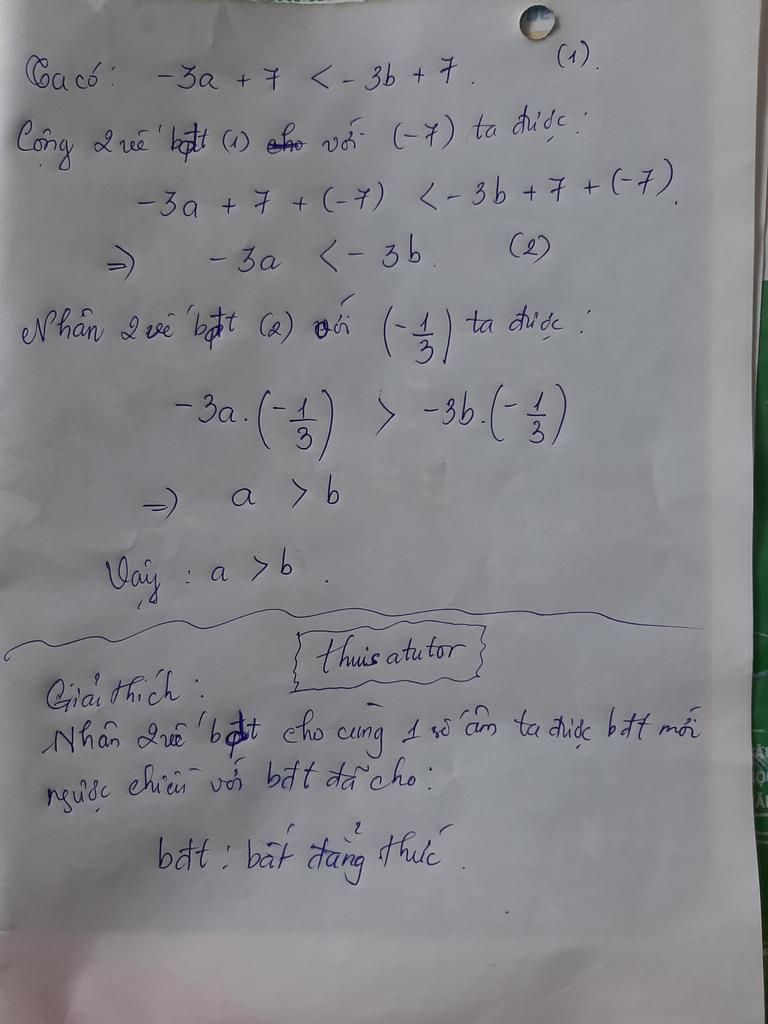 Ta có: -3a + 7 < -3b + 7. (1).
Cộng 2 vế bđt (1) cho với (-7) ta được:
-3a + 7 + (-7) < -3b + 7 + (-7).
=> -3a < -3b. (2)
Nhân 2 vế bđt (2) với (-1/3) ta được:
-3a.(-1/3) > -3b.(-1/3)
=> a > b
Vậy: a > b.
thuisatutor
Giải thích:
Nhân 2 vế bđt cho cùng 1 số âm ta được bđt mới
ngược chiều với bđt đã cho:
bđt: bất đẳng thức.